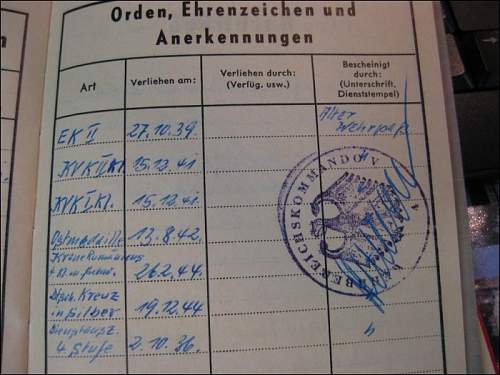 Orden, Ehrenzeichen und
Anerkennungen
Art
Verliehen am:
Verliehen durch:
(Verfüg. usw.)
Bescheinigt
durch:
(Unterschrift,
Dienststempel)
EK II 27.10.39. Alter
Wehrpaß
KVK II.Kl. 15.12.41
KVK I.Kl. 15.12.41.
Ostmedaille 13.8.42.
26.2.44.
Kreuz
in Silber 19.12.44
4. Stufe 2.10.36.
BEREICHSKOMMANDO V